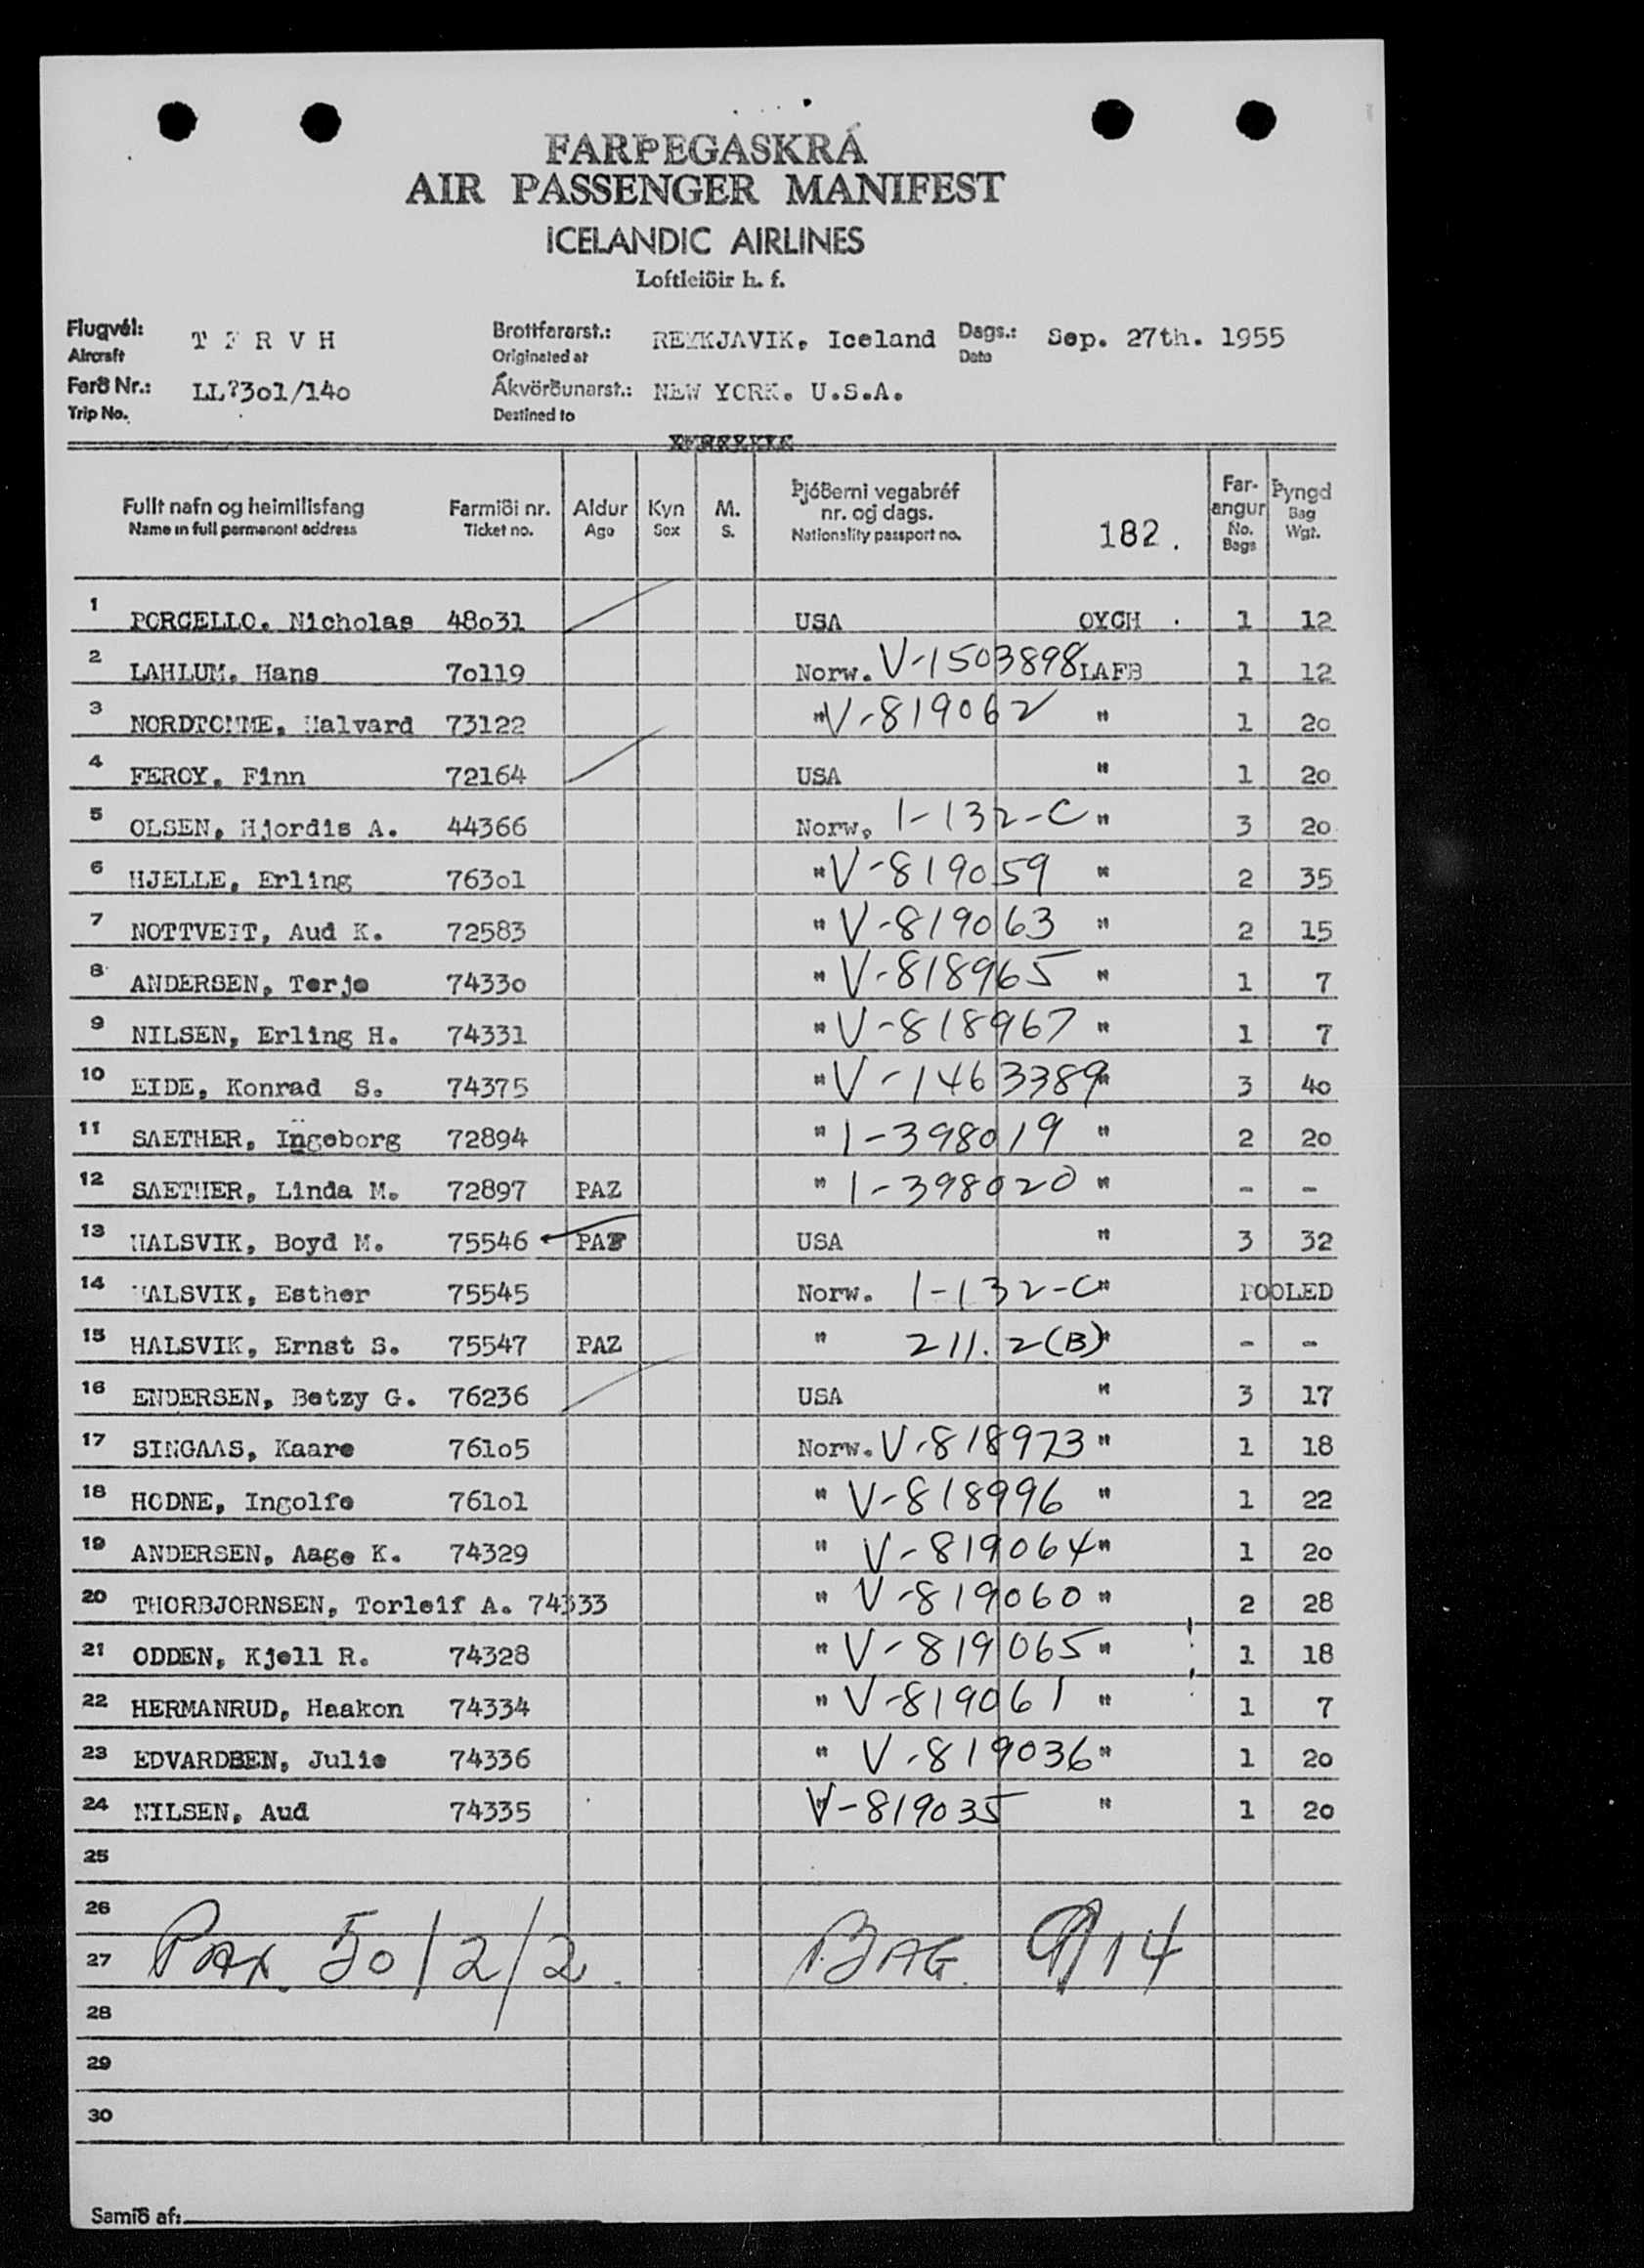 FARÞEGASKRÁ
AIR PASSENGER MANIFEST
ICELANDIC AIRLINES
Loftleiðir h. f.
Flugvél: T F R V H Brottfararst.: REYKJAVIK, Iceland Dags.: Sep. 27th. 1955
Aircraft Originated at Date
Ferð Nr.: LL?3o1/14o Ákvörðunarst.: NEW YORK. U.S.A.
Trip No. Destined to
Fullt nafn og heimilisfang Farmiði nr. Aldur Kyn M. Þjóðerni vegabréf nr. og dags. 182. Farangur Þyngd
Name in full permanent address Ticket no. Age Sex S. Nationality passport no. No. Bags Bag Wgt.
1 PORCELLO. Nicholas 48o31 USA OYCH . 1 12
2 LAHLUM. Hans 7o119 Norw. V-1503898 LAFB 1 12
3 NORDTOMME. Halvard 73122 " V-819062 " 1 2o
4 FEROY. Finn 72164 USA " 1 2o
5 OLSEN, Hjordis A. 44366 Norw. 1-132-C " 3 2o
6 HJELLE, Erling 763o1 " V-819059 " 2 35
7 NOTTVEIT, Aud K. 72583 " V-819063 " 2 15
8 ANDERSEN, Terje 7433o " V-818965 " 1 7
9 NILSEN, Erling H. 74331 " V-818967 " 1 7
10 EIDE, Konrad S. 74375 " V-1463389 " 3 4o
11 SAETHER, Ingeborg 72894 " 1-398019 " 2 2o
12 SAETHER, Linda M. 72897 PAZ " 1-398020 " - -
13 HALSVIK, Boyd M. 75546 USA " 3 32
14 HALSVIK, Esther 75545 Norw. 1-132-C " POOLED
15 HALSVIK, Ernst S. 75547 PAZ " 211.2(B) " - -
16 ENDERSEN, Betzy G. 76236 USA " 3 17
17 SINGAAS, Kaare 761o5 Norw. V-818973 " 1 18
18 HODNE, Ingolfe 761o1 " V-818996 " 1 22
19 ANDERSEN, Aage K. 74329 " V-819064 " 1 2o
20 THORBJORNSEN, Torleif A. 74333 " V-819060 " 2 28
21 ODDEN, Kjell R. 74328 " V-819065 " 1 18
22 HERMANRUD, Haakon 74334 " V-819061 " 1 7
23 EDVARDSEN, Julie 74336 " V-819036 " 1 2o
24 NILSEN, Aud 74335 " V-819035 " 1 2o
25
26
27 Pax. 50/2/2. BAG. 9/14
28
29
30
Samið af: